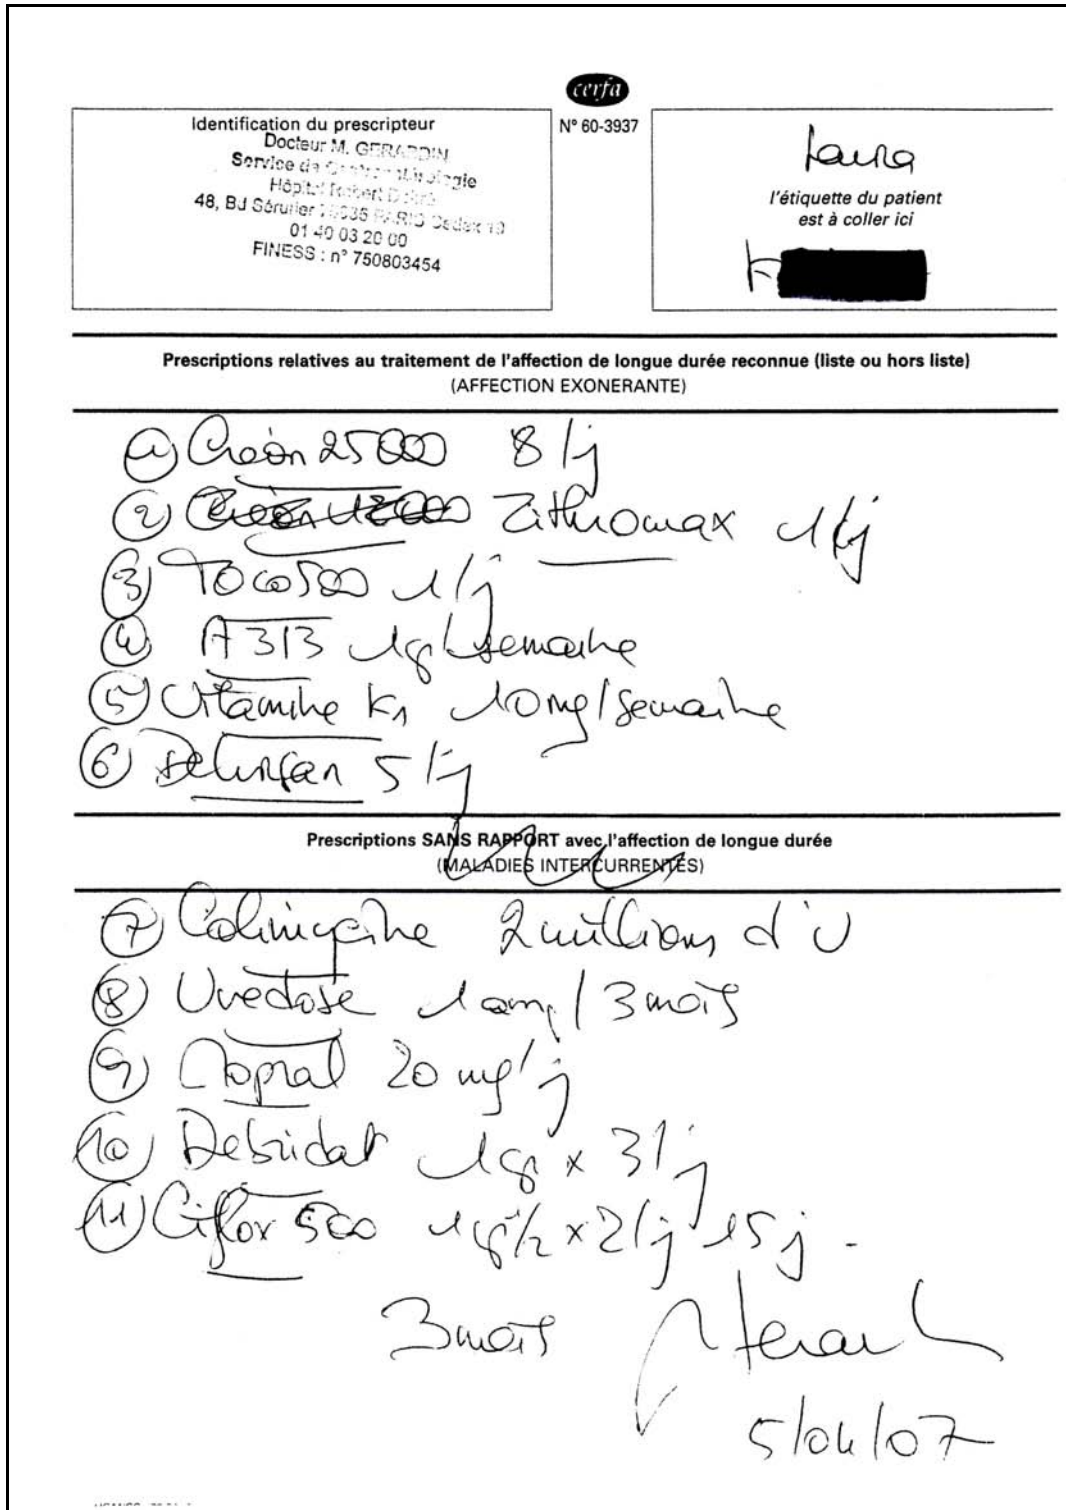 cerfa
N° 60-3937
Identification du prescripteur
Docteur M. GERARDIN
Service de
Hôpital Robert Debré
48, Bd Sérurier 75935 PARIS Cedex 19
01 40 03 20 00
FINESS : n° 750803454
Laura
l'étiquette du patient
est à coller ici
K
Prescriptions relatives au traitement de l'affection de longue durée reconnue (liste ou hors liste)
(AFFECTION EXONERANTE)
1 Créon 25000 8/j
2 Créon 12000 Zithromax 1/j
3 Toco 500 1/j
4 A313 1g/semaine
5 Vitamine K1 10mg/semaine
6 Delursan 5/j
Prescriptions SANS RAPPORT avec l'affection de longue durée
(MALADIES INTERCURRENTES)
7 Colimycine 2 millions d'U
8 Uvedose 1 amp/3 mois
9 Mopral 20 mg/j
10 Debridat 1g x 3/j
11 Ciflox 500 1g 1/2 x 2/j 15j.
3 mois
5/04/07